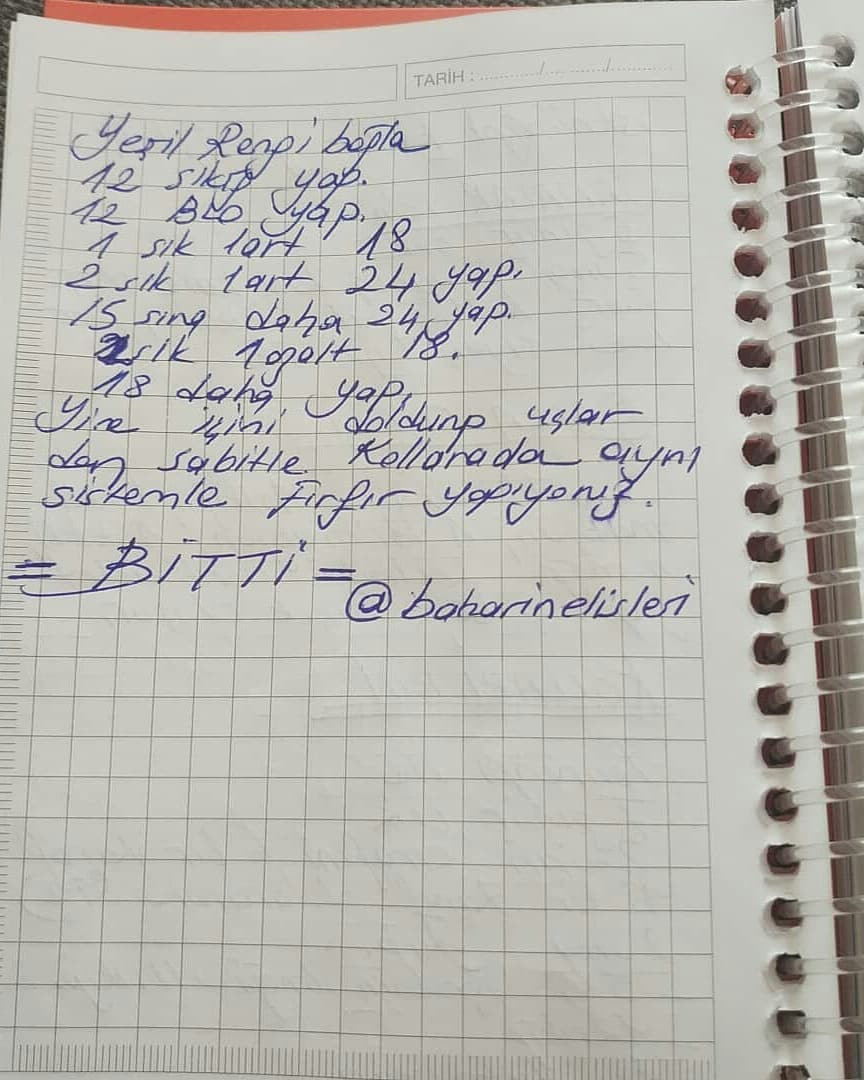 TARİH : ............/............/............
Yeşil Rengi bağla
12 sıkiğ yap.
12 BLO yap.
1 sık 1art 18
2 sık 1art 24 yap.
15 sıra daha 24 yap.
2sık 1azalt 18.
18 daha yap.
Yine içini doldurup uçlar
dan sabitle. Kollarada aynı
sistemle Fırfır yapıyoruz.
= BİTTİ =
@baharinelisleri